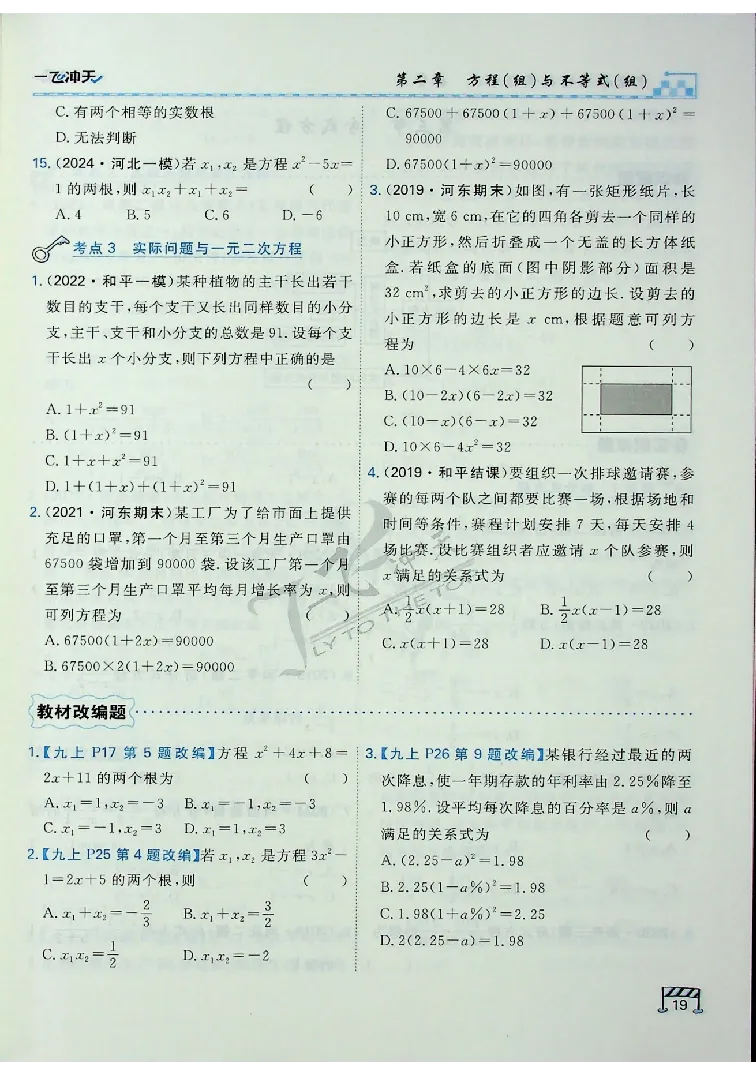 一飞冲天
第二章 方程(组)与不等式(组)
C. 有两个相等的实数根
D. 无法判断
15. (2024·河北一模)若 x₁,x₂ 是方程 x²-5x=
1 的两根,则 x₁x₂+x₁+x₂= ( )
A. 4 B. 5 C. 6 D. -6
考点 3 实际问题与一元二次方程
1. (2022·和平一模)某种植物的主干长出若干
数目的支干,每个支干又长出同样数目的小分
支,主干、支干和小分支的总数是 91. 设每个支
干长出 x 个小分支,则下列方程中正确的是
( )
A. 1+x²=91
B. (1+x)²=91
C. 1+x+x²=91
D. 1+(1+x)+(1+x)²=91
2. (2021·河东期末)某工厂为了给市面上提供
充足的口罩,第一个月至第三个月生产口罩由
67500 袋增加到 90000 袋. 设该工厂第一个月
至第三个月生产口罩平均每月增长率为 x,则
可列方程为 ( )
A. 67500(1+2x)=90000
B. 67500×2(1+2x)=90000
C. 67500+67500(1+x)+67500(1+x)²=
90000
D. 67500(1+x)²=90000
3. (2019·河东期末)如图,有一张矩形纸片,长
10 cm,宽 6 cm,在它的四角各剪去一个同样的
小正方形,然后折叠成一个无盖的长方体纸
盒. 若纸盒的底面(图中阴影部分)面积是
32 cm²,求剪去的小正方形的边长. 设剪去的
小正方形的边长是 x cm,根据题意可列方
程为 ( )
A. 10×6-4×6x=32
B. (10-2x)(6-2x)=32
C. (10-x)(6-x)=32
D. 10×6-4x²=32
4. (2019·和平结课)要组织一次排球邀请赛,参
赛的每两个队之间都要比赛一场,根据场地和
时间等条件,赛程计划安排 7 天,每天安排 4
场比赛. 设比赛组织者应邀请 x 个队参赛,则
x 满足的关系式为 ( )
A. \frac{1}{2}x(x+1)=28 B. \frac{1}{2}x(x-1)=28
C. x(x+1)=28 D. x(x-1)=28
飞冲天
FLY TO THE TOP
教材改编题
1.【九上 P17 第 5 题改编】方程 x²+4x+8=
2x+11 的两个根为 ( )
A. x₁=1,x₂=-3 B. x₁=-1,x₂=-3
C. x₁=-1,x₂=3 D. x₁=1,x₂=3
2.【九上 P25 第 4 题改编】若 x₁,x₂ 是方程 3x²-
1=2x+5 的两个根,则 ( )
A. x₁+x₂=-\frac{2}{3} B. x₁+x₂=\frac{3}{2}
C. x₁x₂=\frac{1}{2} D. x₁x₂=-2
3.【九上 P26 第 9 题改编】某银行经过最近的两
次降息,使一年期存款的年利率由 2.25%降至
1.98%. 设平均每次降息的百分率是 a%,则 a
满足的关系式为 ( )
A. (2.25-a)²=1.98
B. 2.25(1-a%)²=1.98
C. 1.98(1+a%)²=2.25
D. 2(2.25-a)=1.98
19